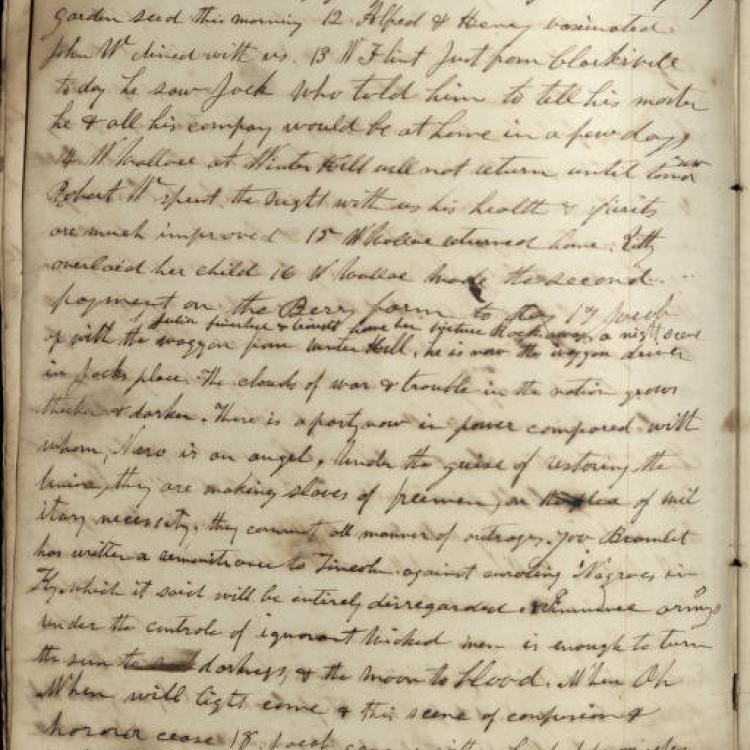 garden seed this morning 12 Alfred & Henry vaxinated
John W dined with us. 13 W Flint Just from Clarksvile
to day he saw Jack who told him to tell his master
he & all his company would be at home in a few days
14 W Wallace at Winter Hill will not return until tomor
row
Robert W spent the night with us his health & spirits
are much improved 15 W Wallace returned home. Kitty
overlaid her child 16 W Wallace made the second
payment on the Berry farm to day 17 Jacob
Julia finished & have her picture Rockaway a night scene
up with the waggon from Winter Hill, he is now the waggon driver
in Jacks place. The clouds of war & trouble in the nation grows
thicker & darker. There is a party now in power compared with
whom, Nero is an angel, Under the guise of restoring the
Union, they are making slaves of freemen, on the plea of mil
itary necessity, they commit all manner of outrages. Gov Bramlet
has written a remonstrance to Lincoln against enroling Negroes in
Ky, which it said will be entirely disregarded. Immence armys
under the controle of ignorant wicked men is enough to turn
the sun to darkness, & the moon to blood. When Oh
When will light come & this scene of confusion &
horror cease 18 Jacob